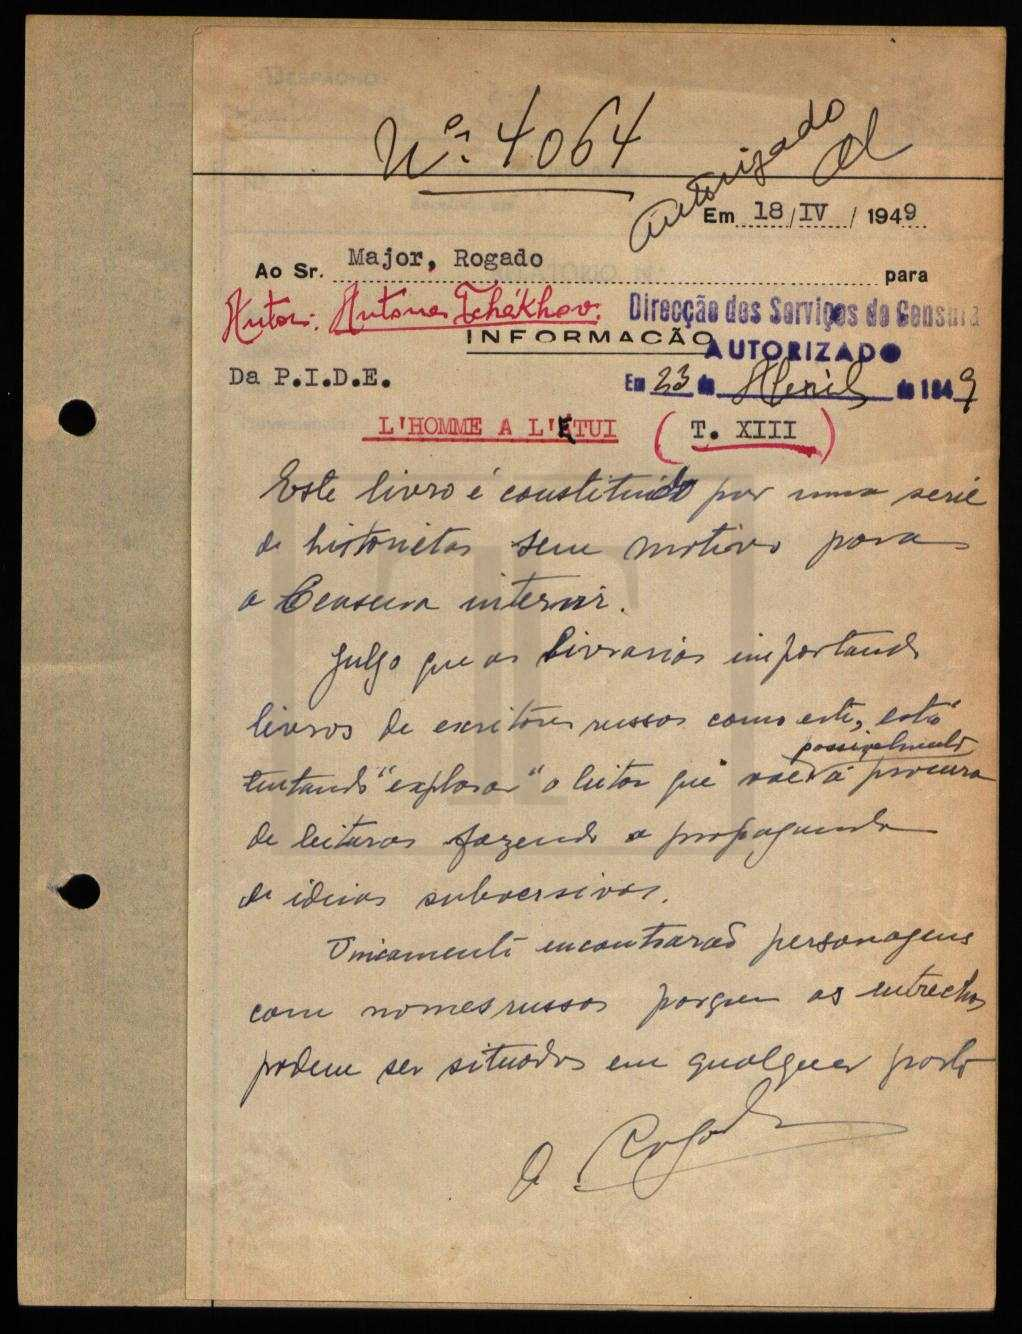 Nº 4064
Autorizado
Em 18/IV/1949
Ao Sr. Major, Rogado para
Autor: Antone Tchékhov.
Direcção dos Serviços de Censura
INFORMAÇÃO
AUTORIZADO
Da P.I.D.E.
Em 23 de Abril de 1949
L'HOMME A L'ÉTUI (T. XIII)
Este livro é constituido por uma serie
de historietas sem motivo para
a Censura intervir.
Julgo que as Livrarias importando
livros de escritores russos como este, está
possivelmente
tentando "explorar" o leitor que vae à procura
de leituras fazendo a propaganda
de ideias subversivas.
Unicamente encontrarão personagens
com nomes russos porque os entrechos
podem ser situados em qualquer parte
Rogado